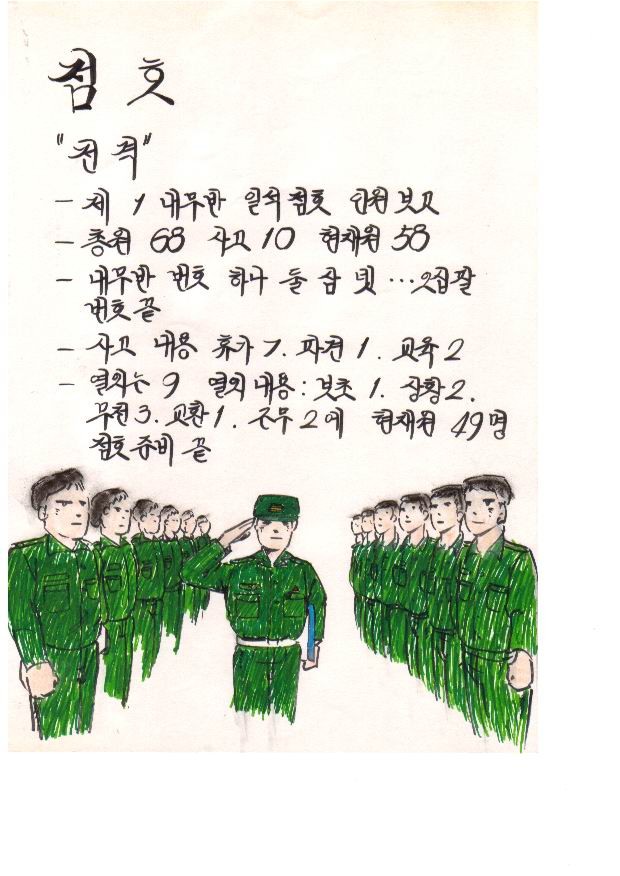 점호
"전격"
- 제 1 내무반 일석점호 인원보고
- 총원 68 사고 10 현재원 58
- 내무반 번호 하나 둘 삼 넷 ...오십팔
번호 끝
- 사고 내용 휴가 7. 파견 1. 교육 2
- 열외는 9 열외내용: 보초 1. 상황 2.
무전 3. 교환 1. 근무 2에 현재원 49명
점호준비 끝